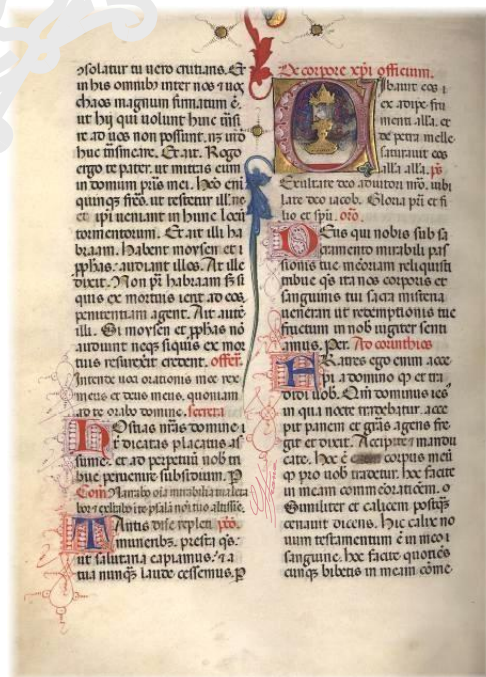 ɔsolatur tu uero cruciaris. Et
in his omnibꝫ inter nos ⁊ uos
chaos magnum firmatum ē.
ut hij qui uolunt hinc trāsi
re ad uos non possunt. nꝫ inde
huc trāsmeare. Et ait. Rogo
ergo te pater. ut mittas eum
in domum pr̄is mei. Hēo eni
quinqꝫ frēs. ut testetur ill. ne
et ipi ueniant in hunc locū
tormentorum. Et ait illi ha
braam. Habent moysen et
pphas. audiant illos. At ille
dixit. Non pr̄ habraam. sꝫ si
quis ex mortuis ierit ad eos
penitentiam agent. Ait autē
illi. Si moysen et pphas nō
audiunt neqꝫ siquis ex mor
tuis resurexit credent. offert̄.
Intende uoci orationis mee rex
meus et deus meus. quoniam
ad te orabo domine. secreta
Hostias nr̄as domine
tʼ dicatas placatus as
sume. et ad perpetuū nob tri
bue peruenire subsidium. P
Com̄. Narrabo oīa mirabilia tua leta
bor ⁊ exultabo ī te psalā noī tuo altissīe.
Tantis dn̄e repleti pco.
muneribꝫ. presta qs.
ut salutaria capiamus. ⁊ a
tua nunqꝫ laude cessemus. P
De corpore xp̄i officium.
Cibauit eos
ex adipe fru
menti alla. et
de petra melle
saturauit eos
alla alla. ps̄
Exultate deo adiutori nr̄o. iubi
late deo iacob. Gloria pri et fi
lio et spū. or̄o.
Deus qui nobis sub sa
cramento mirabili pas
sionis tue mēoriam reliquisti
tribue qs ita nos corporis et
sanguinis tui sacra misteria
uenerari ut redemptionis tue
fructum in nob iugiter senti
amus. Per. Ad corinthios
Fratres ego enim acce
pi a domino qꝫ et tra
didi uob. Qm̄ dominus ies̄
in qua nocte tradebatur. acce
pit panem et grās agens fre
git et dixit. Accipite ⁊ mandu
cate. hoc ē corpus meū
qꝫ pro uob tradetur. hoc facite
in meam commēoratiōem.
Similiter et calicem postqꝫ
cenauit dicens. Hic calix no
uum testamentum ē in meo
sanguine. hoc facite quotiēs
cunqꝫ bibetis in meam cōme